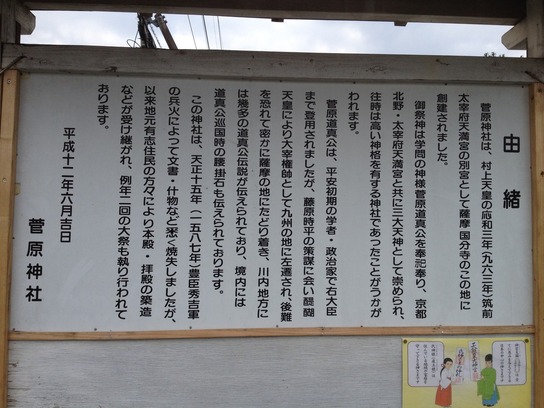 由緒
菅原神社は、村上天皇の応和三年（九六三年）筑前
太宰府天満宮の別宮として薩摩国分寺のこの地に
創建されました。
御祭神は学問の神様菅原道真公を奉祀奉り、京都
北野・太宰府天満宮と共に三大天神として崇められ、
往時は高い神格を有する神社であったことがうかが
われます。
菅原道真公は、平安初期の学者・政治家で右大臣
まで登用されましたが、藤原時平の策謀に会い醍醐
天皇により大宰権師として九州の地に左遷され、後難
を恐れて密かに薩摩の地にたどり着き、川内地方に
は幾多の道真公伝説が伝えられており、境内には
道真公巡国時の腰掛石も伝えられております。
この神社は、天正十五年（一五八七年）豊臣秀吉軍
の兵火によって文書・什物など悉く焼失しましたが、
以来地元有志住民の方々により本殿・拝殿の築造
などが受け継がれ、例年二回の大祭も執り行われて
おります。
平成十二年六月吉日
菅原神社